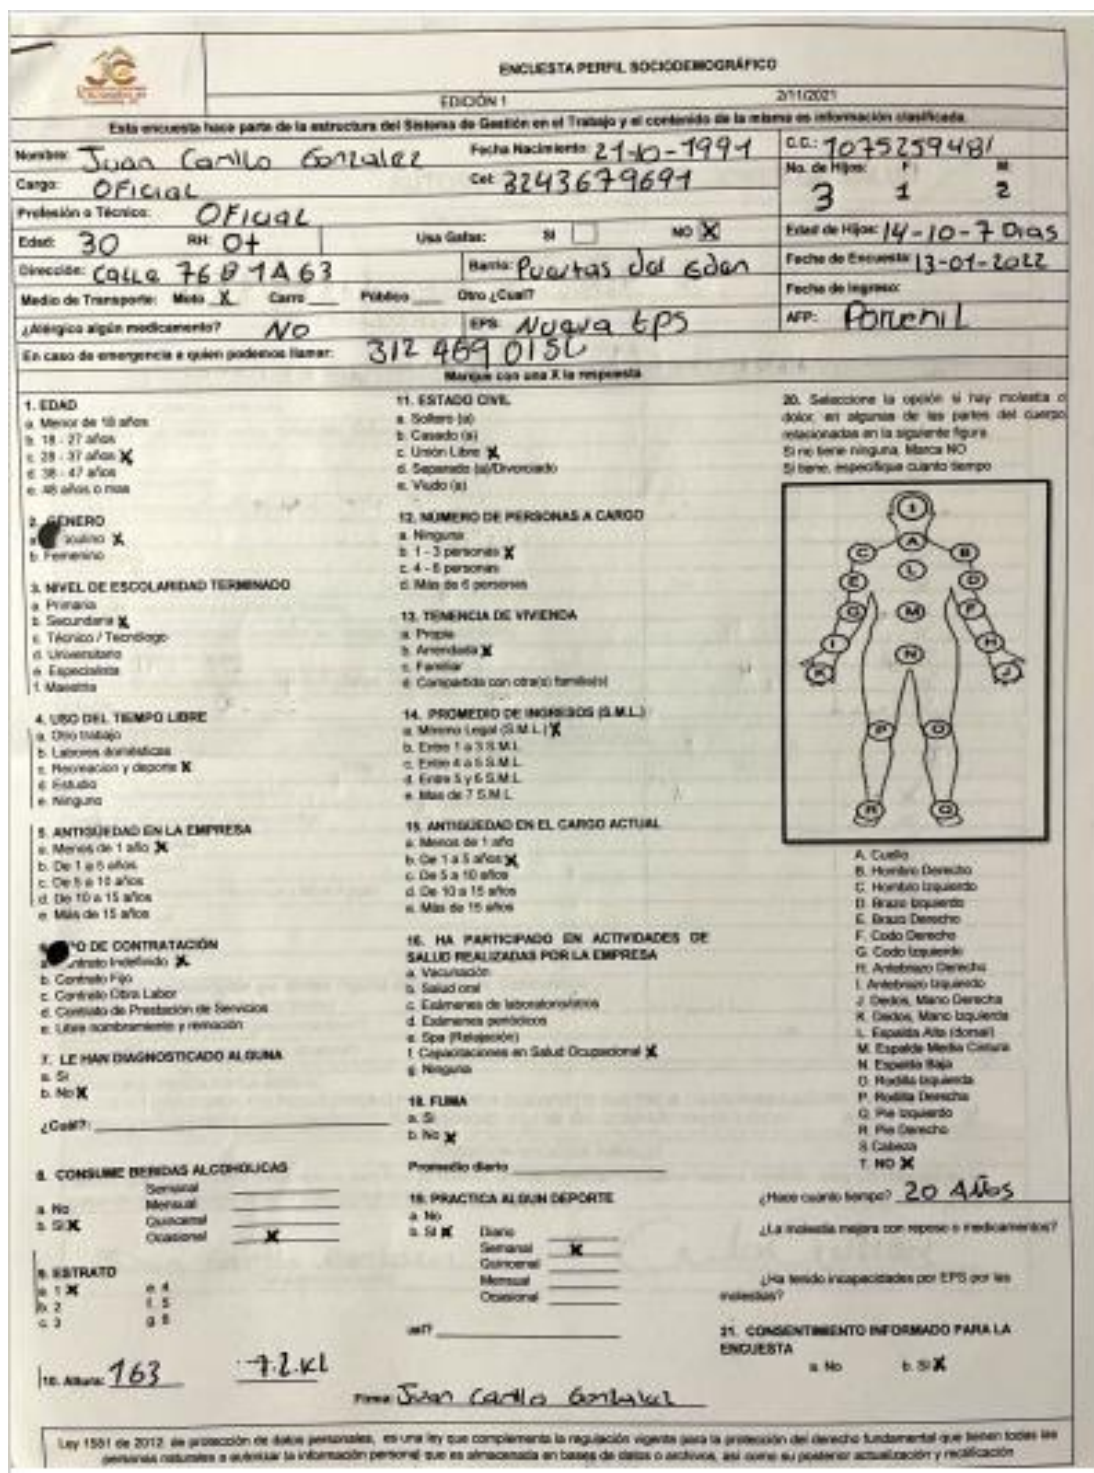 ENCUESTA PERFIL SOCIODEMOGRÁFICO
EDICIÓN 1 2/11/2021
Esta encuesta hace parte de la estructura del Sistema de Gestión en el Trabajo y el contenido de la misma es información clasificada.
Nombre: Juan Camilo Gonzalez Fecha Nacimiento: 21-10-1991 C.C.: 1075259481
Cargo: OFicial Cel: 3243679691 No. de Hijos: 3 F 1 M 2
Profesión o Técnico: OFicial
Edad: 30 RH: O+ Usa Gafas: SI NO X Edad de Hijos: 14-10-7 Dias
Dirección: Calle 76B 1A 63 Barrio: Puertas del Eden Fecha de Encuesta: 13-01-2022
Medio de Transporte: Moto X Carro ___ Público ___ Otro ¿Cual? Fecha de Ingreso:
¿Alérgico algún medicamento? NO EPS: Nueva EPS AFP:
En caso de emergencia a quien podemos llamar: 312 469
Marque con una X la respuesta
1. EDAD
a. Menor de 18 años
b. 18 - 27 años
c. 28 - 37 años X
d. 38 - 47 años
e. 48 años o mas
2. GÉNERO
a. culino X
b. Femenino
3. NIVEL DE ESCOLARIDAD TERMINADO
a. Primaria
b. Secundaria X
c. Técnico / Tecnólogo
d. Universitario
e. Especialista
f. Maestría
4. USO DEL TIEMPO LIBRE
a. Otro trabajo
b. Labores domésticas
c. Recreacion y deporte X
d. Estudio
e. Ninguno
5. ANTIGÜEDAD EN LA EMPRESA
a. Menos de 1 año X
b. De 1 a 5 años
c. De 5 a 10 años
d. De 10 a 15 años
e. Más de 15 años
PO DE CONTRATACIÓN
ontrato Indefinido X
b. Contrato Fijo
c. Contrato Obra Labor
d. Contrato de Prestación de Servicios
e. Libre nombramiento y remoción
7. LE HAN DIAGNOSTICADO ALGUNA
a. Si
b. No X
¿Cuál?:
8. CONSUME BEBIDAS ALCOHOLICAS
a. No
b. SI X
Semanal
Mensual
Quincenal
Ocasional X
9. ESTRATO
a. 1 X e. 4
b. 2 f. 5
c. 3 g. 6
10. Altura: 163 7.2.KL
11. ESTADO CIVIL
a. Soltero (a)
b. Casado (a)
c. Unión Libre X
d. Separado (a)/Divorciado
e. Viudo (a)
12. NÚMERO DE PERSONAS A CARGO
a. Ninguna
b. 1 - 3 personas X
c. 4 - 6 personas
d. Más de 6 personas
13. TENENCIA DE VIVIENDA
a. Propia
b. Arrendada X
c. Familiar
d. Compartida con otra(s) familia(s)
14. PROMEDIO DE INGRESOS (S.M.L.)
a. Mínimo Legal (S.M.L.) X
b. Entre 1 a 3 S.M.L
c. Entre 4 a 5 S.M.L
d. Entre 5 y 6 S.M.L
e. Mas de 7 S.M.L
15. ANTIGÜEDAD EN EL CARGO ACTUAL
a. Menos de 1 año
b. De 1 a 5 años X
c. De 5 a 10 años
d. De 10 a 15 años
e. Más de 15 años
16. HA PARTICIPADO EN ACTIVIDADES DE
SALUD REALIZADAS POR LA EMPRESA
a. Vacunación
b. Salud oral
c. Exámenes de
d. Exámenes periódicos
e. Spa (Relajación)
f. Capacitaciones en Salud Ocupacional X
g. Ninguna
18. FUMA
a. Si
b. No X
Promedio diario
19. PRACTICA ALGUN DEPORTE
a. No
b. SI X
Diario
Semanal X
Quincenal
Mensual
Ocasional
Firma: Juan Camilo Gonzalez
20. Seleccione la opción si hay molestia o
dolor, en algunas de las partes del cuerpo
relacionadas en la siguiente figura
Si no tiene ninguna, Marca NO
Si tiene, especifique cuanto tiempo
1
A
C B
L
E D
G M F
I H
N
K J
P O
R Q
A. Cuello
B. Hombro Derecho
C. Hombro Izquierdo
D. Brazo Izquierdo
E. Brazo Derecho
F. Codo Derecho
G. Codo Izquierdo
H. Antebrazo Derecho
I. Antebrazo Izquierdo
J. Dedos, Mano Derecha
K. Dedos, Mano Izquierda
L. Espalda Alta (dorsal)
M. Espalda Media Cintura
N. Espalda Baja
O. Rodilla Izquierda
P. Rodilla Derecha
Q. Pie Izquierdo
R. Pie Derecho
S. Cabeza
T. NO X
¿Hace cuanto tiempo? 20 AÑos
¿La molestia mejora con reposo o medicamentos?
¿Ha tenido incapacidades por EPS por las
molestias?
21. CONSENTIMIENTO INFORMADO PARA LA
ENCUESTA
a. No b. SI X
Ley 1581 de 2012 de protección de datos personales, es una ley que complementa la regulación vigente para la protección del derecho fundamental que tienen todas las
personas naturales a autorizar la información personal que es almacenada en bases de datos o archivos, así como su posterior actualización y rectificación